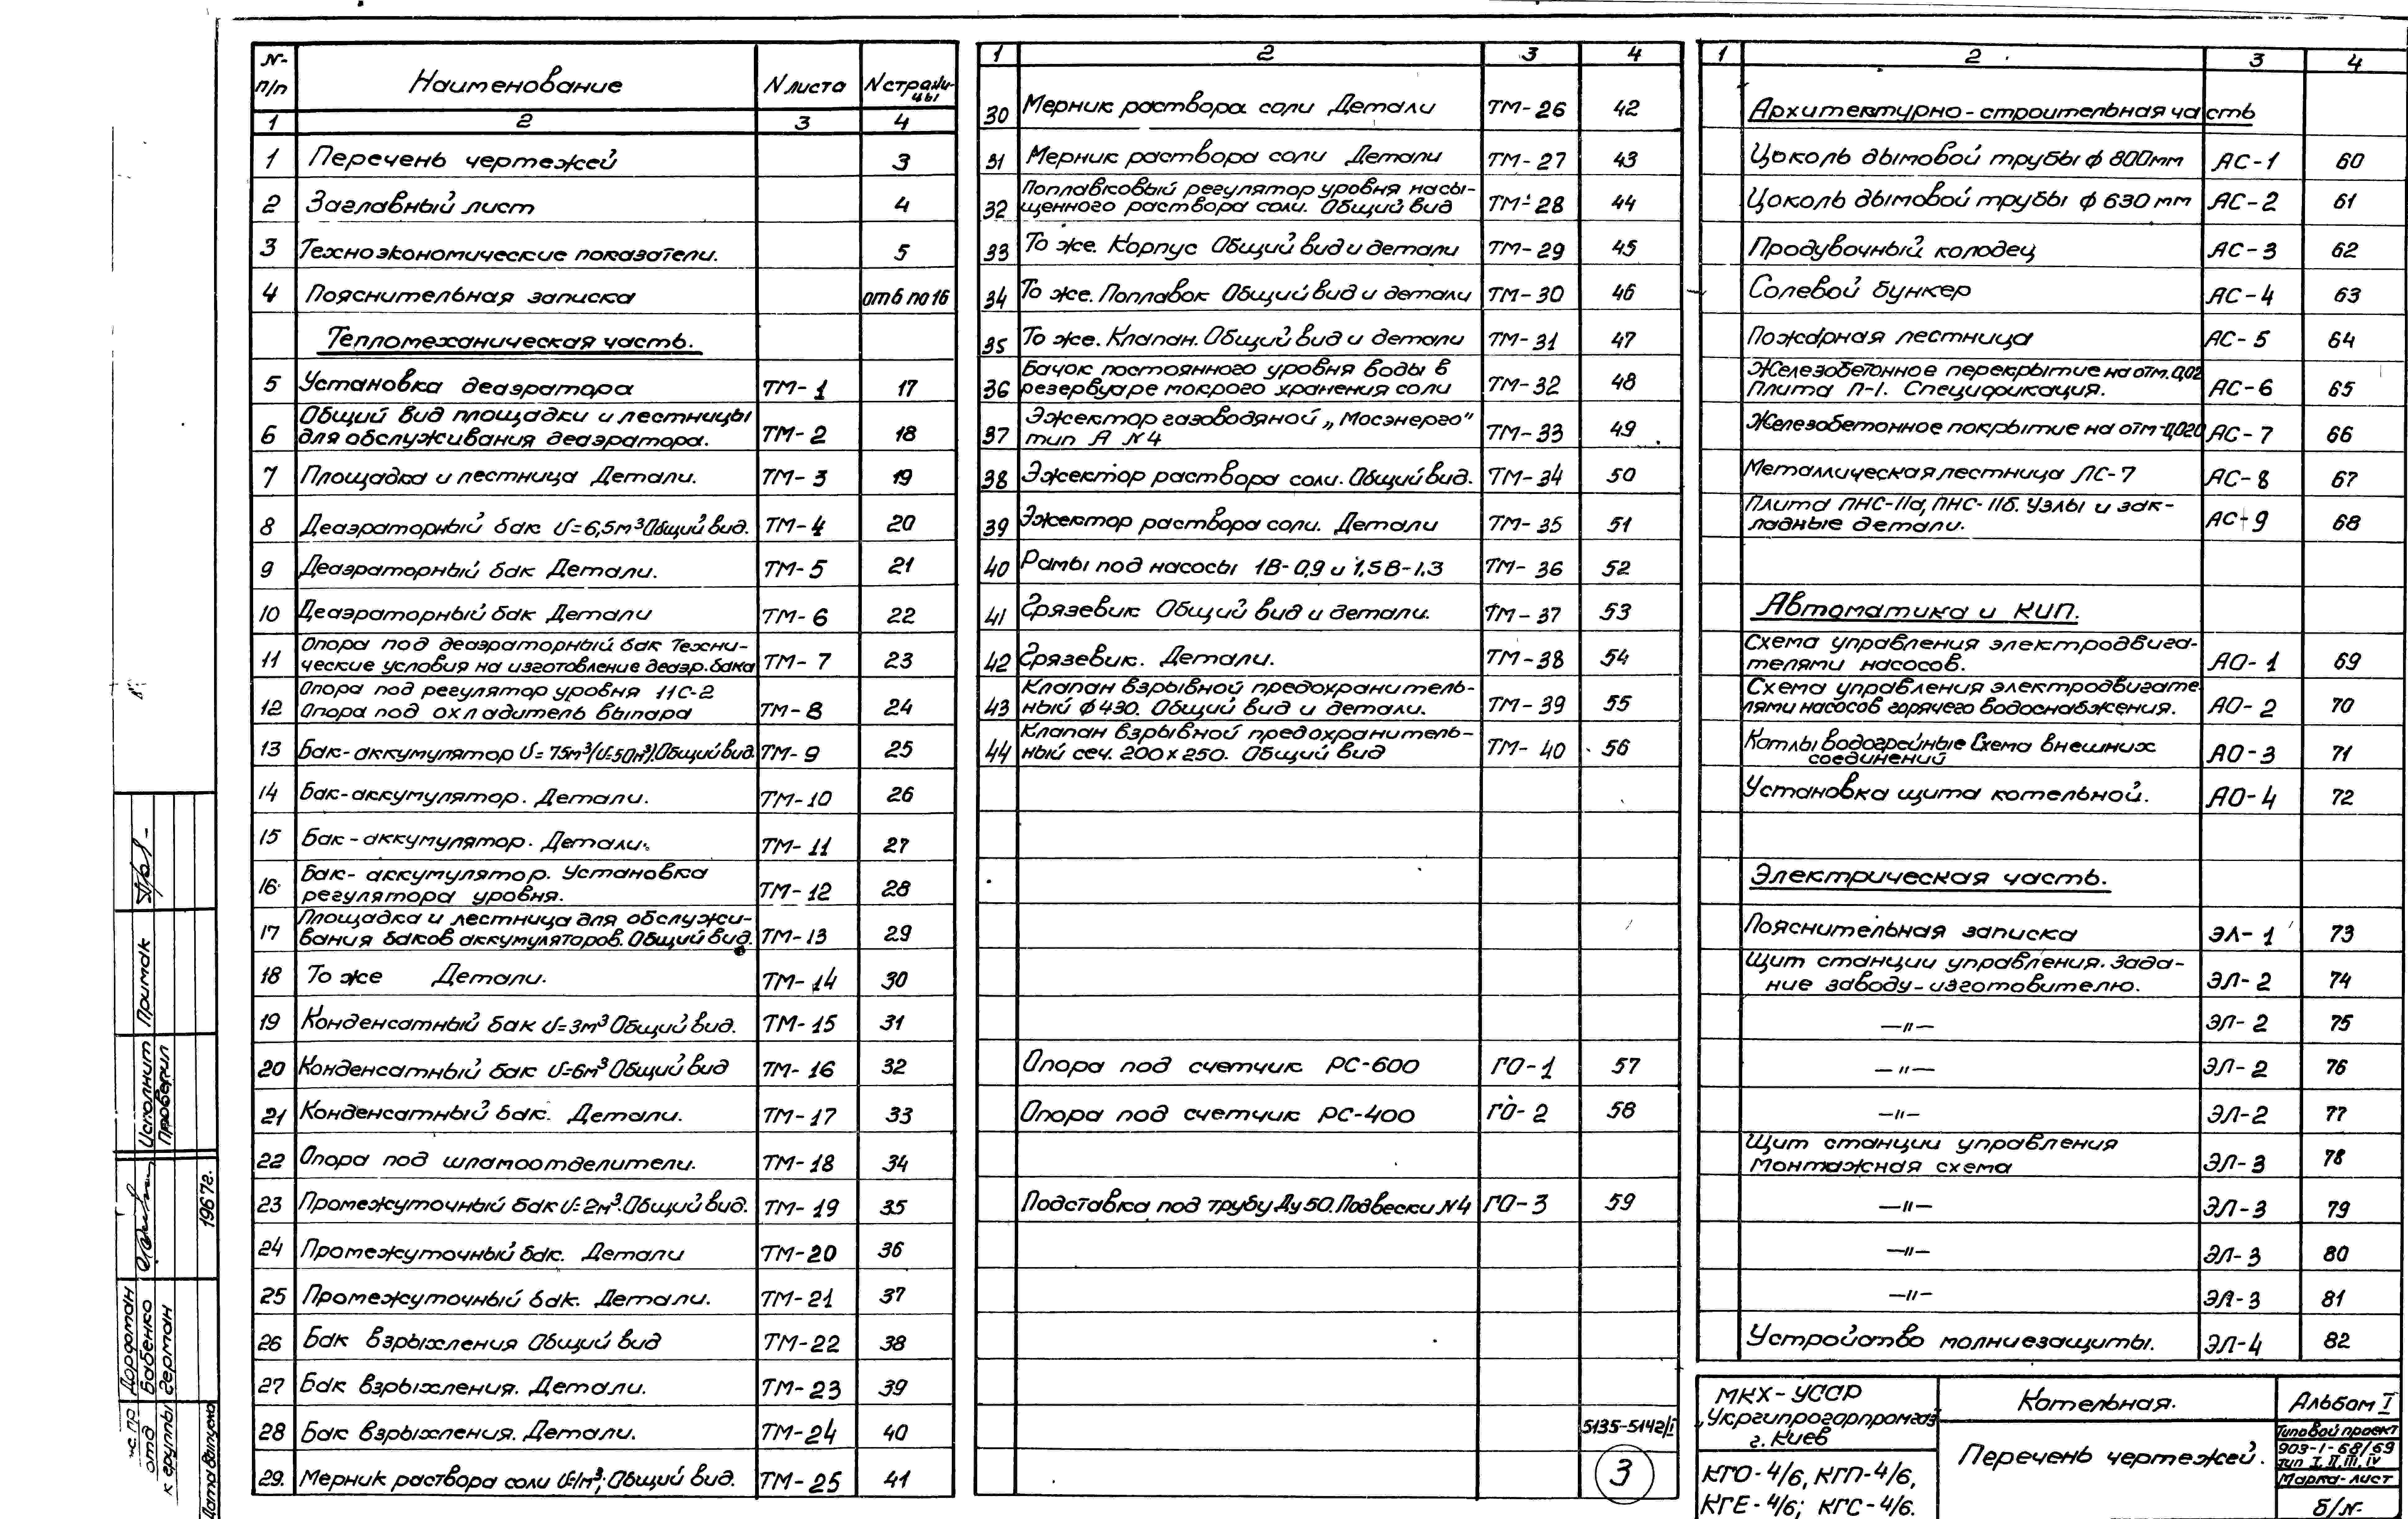 № п/п Наименование N листа N страницы
1 2 3 4
1 Перечень чертежей 3
2 Заглавный лист 4
3 Техноэкономические показатели. 5
4 Пояснительная записка от 6 по 16
Тепломеханическая часть.
5 Установка деаэратора ТМ-1 17
6 Общий вид площадки и лестницы
для обслуживания деаэратора. ТМ-2 18
7 Площадка и лестница Детали. ТМ-3 19
8 Деаэраторный бак V=6,5м³ Общий вид. ТМ-4 20
9 Деаэраторный бак Детали. ТМ-5 21
10 Деаэраторный бак Детали ТМ-6 22
11 Опора под деаэраторный бак Техни-
ческие условия на изготовление деаэр. бака ТМ-7 23
12 Опора под регулятор уровня 11С-2
Опора под охладитель выпара ТМ-8 24
13 Бак-аккумулятор V=75м³/(V=50м³). Общий вид. ТМ-9 25
14 Бак-аккумулятор. Детали. ТМ-10 26
15 Бак-аккумулятор. Детали. ТМ-11 27
16 Бак-аккумулятор. Установка
регулятора уровня. ТМ-12 28
17 Площадка и лестница для обслужи-
вания баков аккумуляторов. Общий вид. ТМ-13 29
18 То же Детали. ТМ-14 30
19 Конденсатный бак V=3м³ Общий вид. ТМ-15 31
20 Конденсатный бак V=6м³ Общий вид ТМ-16 32
21 Конденсатный бак. Детали. ТМ-17 33
22 Опора под шламоотделители. ТМ-18 34
23 Промежуточный бак V=2м³. Общий вид. ТМ-19 35
24 Промежуточный бак. Детали ТМ-20 36
25 Промежуточный бак. Детали. ТМ-21 37
26 Бак взрыхления Общий вид ТМ-22 38
27 Бак взрыхления. Детали. ТМ-23 39
28 Бак взрыхления. Детали. ТМ-24 40
29. Мерник раствора соли V=1м³; Общий вид. ТМ-25 41
1 2 3 4
30 Мерник раствора соли Детали ТМ-26 42
31 Мерник раствора соли Детали ТМ-27 43
32 Поплавковый регулятор уровня насы-
щенного раствора соли. Общий вид ТМ-28 44
33 То же. Корпус Общий вид и детали ТМ-29 45
34 То же. Поплавок Общий вид и детали ТМ-30 46
35 То же. Клапан. Общий вид и детали ТМ-31 47
36 Бачок постоянного уровня воды в
резервуаре мокрого хранения соли ТМ-32 48
37 Эжектор газоводяной „Мосэнерго"
тип А №4 ТМ-33 49
38 Эжектор раствора соли. Общий вид. ТМ-34 50
39 Эжектор раствора соли. Детали ТМ-35 51
40 Рамы под насосы 1В-0,9 и 1,5В-1,3 ТМ-36 52
41 Грязевик Общий вид и детали. ТМ-37 53
42 Грязевик. Детали. ТМ-38 54
43 Клапан взрывной предохранитель-
ный ф 430. Общий вид и детали. ТМ-39 55
44 Клапан взрывной предохранитель-
ный сеч. 200х250. Общий вид ТМ-40 56
Опора под счетчик РС-600 ГО-1 57
Опора под счетчик РС-400 ГО-2 58
Подставка под трубу Ду 50. Подвески №4 ГО-3 59
5135-5142/I
3
1 2 3 4
Архитектурно-строительная часть
Цоколь дымовой трубы ф 800мм АС-1 60
Цоколь дымовой трубы ф 630мм АС-2 61
Продувочный колодец АС-3 62
Солевой бункер АС-4 63
Пожарная лестница АС-5 64
Железобетонное перекрытие на отм. 0,02
Плита П-1. Спецификация. АС-6 65
Железобетонное покрытие на отм-0,020 АС-7 66
Металлическая лестница ЛС-7 АС-8 67
Плита ПНС-11а, ПНС-11б. Узлы и зак-
ладные детали. АС-9 68
Автоматика и КИП.
Схема управления электродвига-
телями насосов. АО-1 69
Схема управления электродвигате
лями насосов горячего водоснабжения. АО-2 70
Котлы водогрейные Схема внешних
соединений АО-3 71
Установка щита котельной. АО-4 72
Электрическая часть.
Пояснительная записка ЭЛ-1 73
Щит станции управления. Зада-
ние заводу-изготовителю. ЭЛ-2 74
—"— ЭЛ-2 75
—"— ЭЛ-2 76
—"— ЭЛ-2 77
Щит станции управления
Монтажная схема ЭЛ-3 78
—"— ЭЛ-3 79
—"— ЭЛ-3 80
—"— ЭЛ-3 81
Устройство молниезащиты. ЭЛ-4 82
МКХ-УССР
„Укргипрогорпромгаз"
г. Киев
КГО-4/6, КГП-4/6,
КГЕ-4/6; КГС-4/6.
Котельная.
Перечень чертежей.
Альбом I
Типовой проект
903-1-68/69
тип I, II, III, IV
Марка-лист
б/№
Исполнит Примак
Проверил
Дорфман
отд Бабенко
к группы Герман
Дата выпуска 1967г.